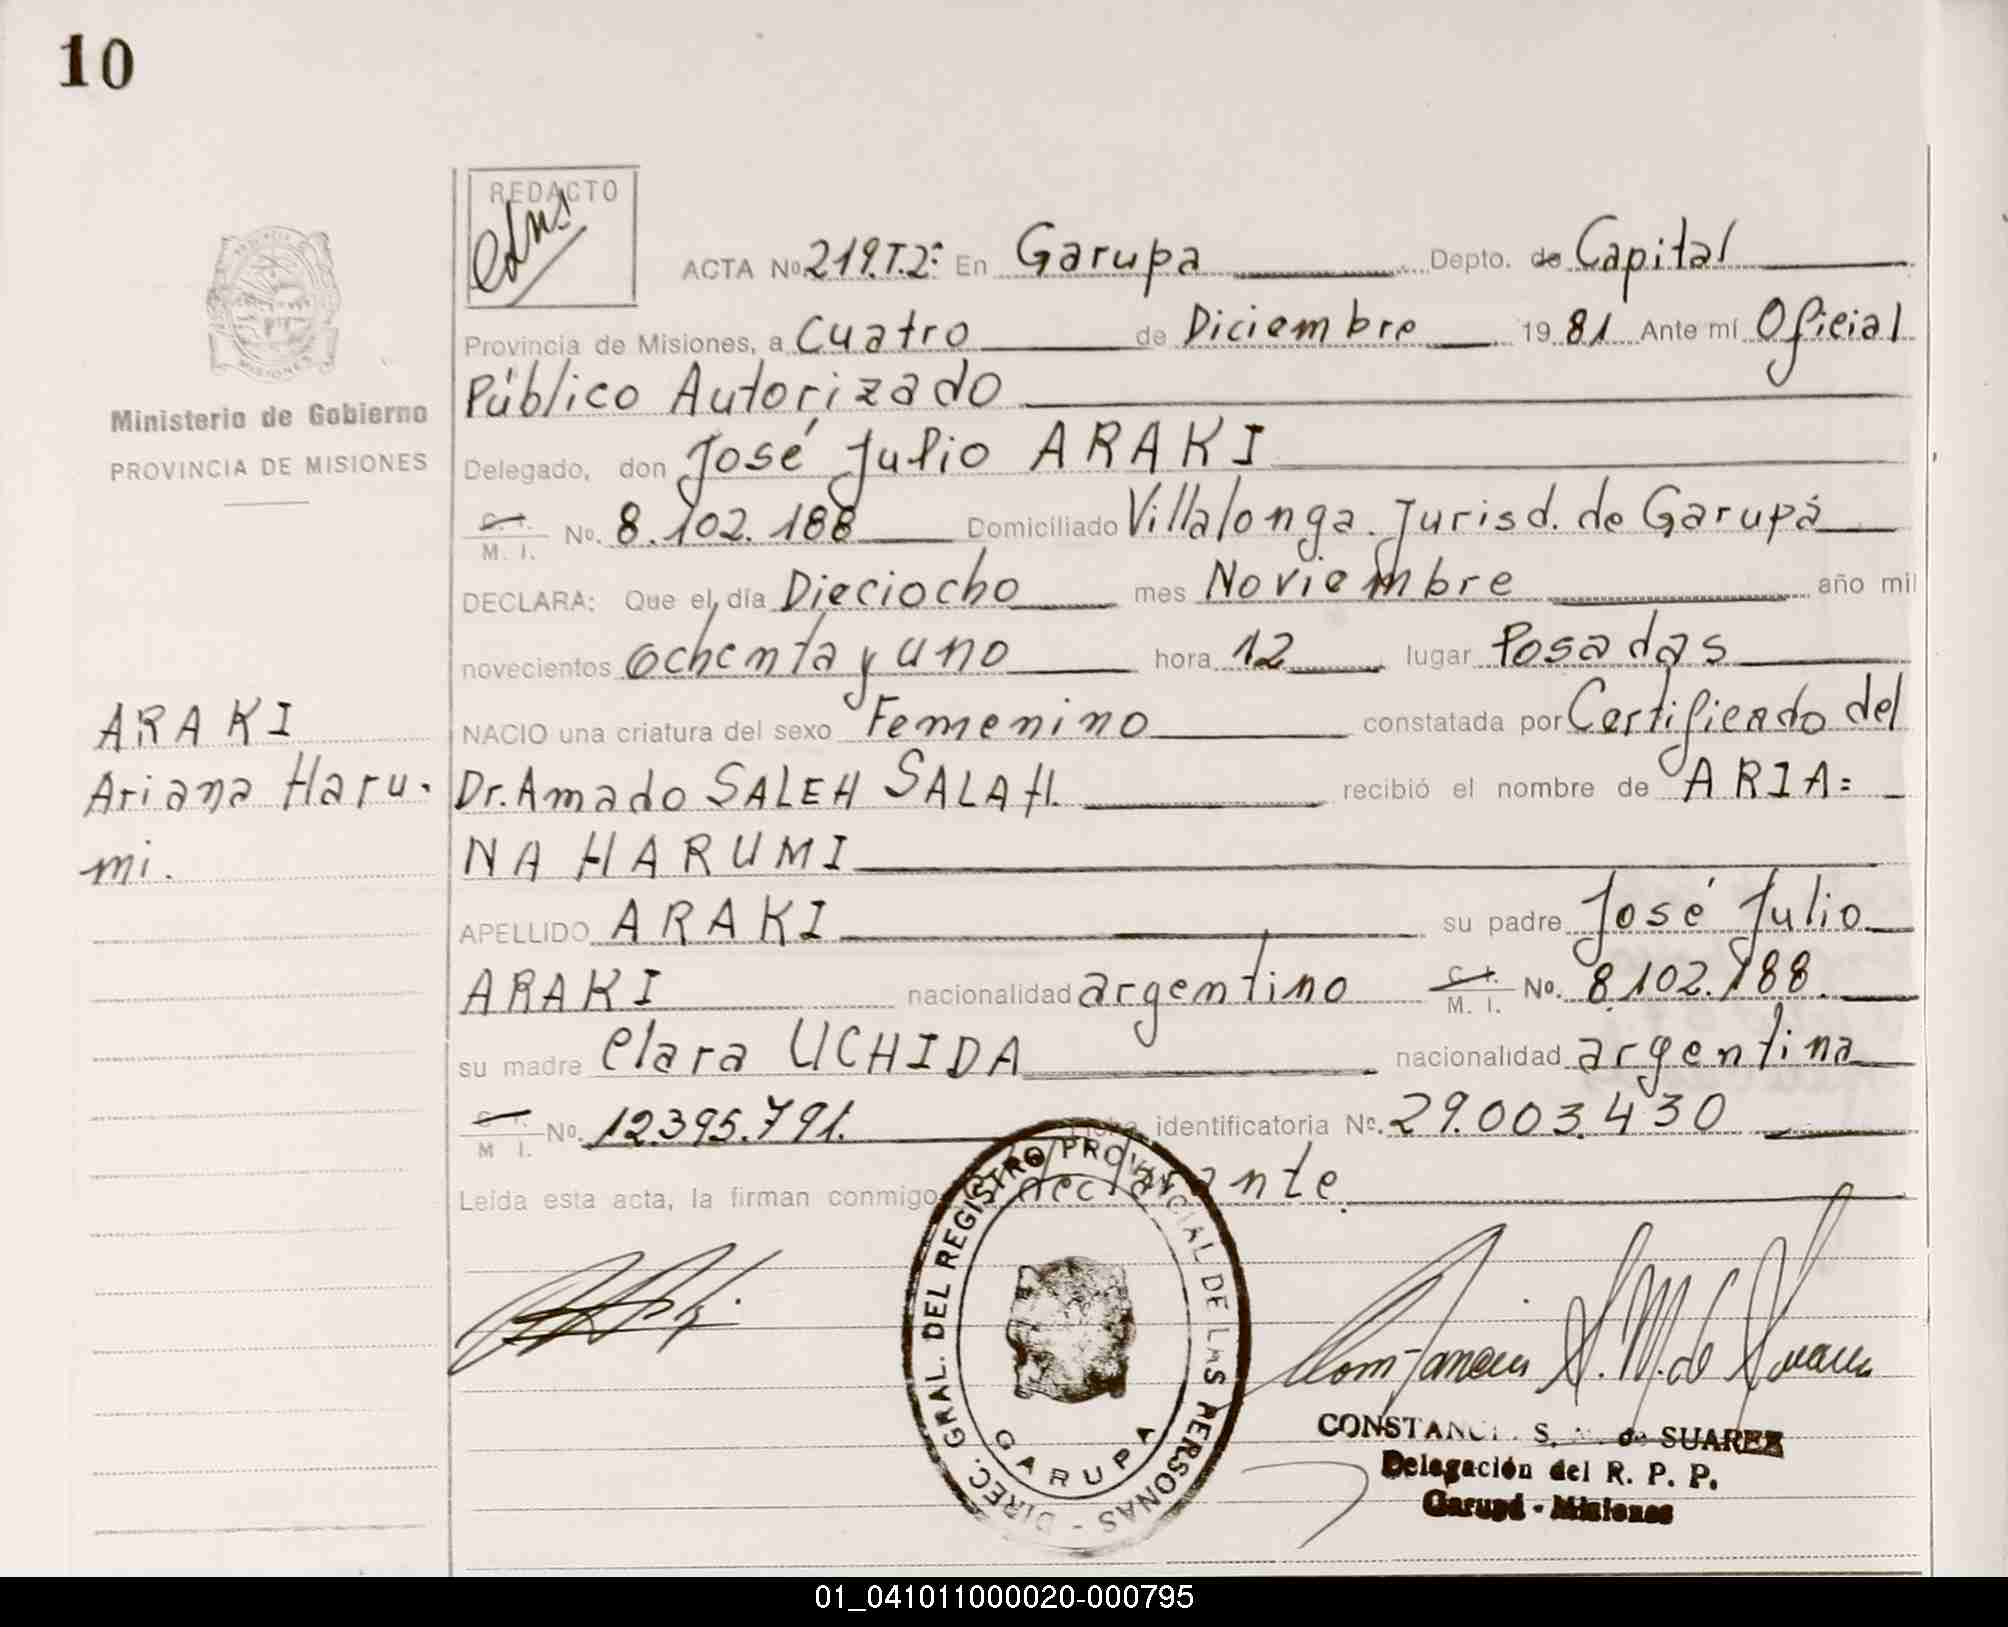 10
REDACTO
ACTA No. 219.T.2º En Garupa Depto. de Capital
Provincia de Misiones, a Cuatro de Diciembre 1981 Ante mí Oficial
Público Autorizado
Ministerio de Gobierno
PROVINCIA DE MISIONES
Delegado, don José Julio ARAKI
C. I.
M. I. No. 8.102.188 Domiciliado Villalonga. Jurisd. de Garupá
DECLARA: Que el día Dieciocho mes Noviembre año mil
novecientos ochenta y uno hora 12 lugar Posadas
ARAKI
Ariana Haru-
mi.
NACIO una criatura del sexo Femenino constatada por Certificado del
Dr. Amado SALEH SALAH. recibió el nombre de ARIA=
NA HARUMI
APELLIDO ARAKI su padre José Julio
ARAKI nacionalidad argentino C. I.
M. I. No. 8.102.188.
su madre Clara UCHIDA nacionalidad argentina
C. I.
M. I. No. 12.395.791. Ficha identificatoria No. 29.003.430
Leida esta acta, la firman conmigo declarante.
DIREC. GRAL. DEL REGISTRO PROVINCIAL DE LAS PERSONAS -
GARUPA
Constancia S. M. de Suarez
CONSTANCI. S. M. de SUAREZ
Delegación del R. P. P.
Garupá - Misiones
01_041011000020-000795